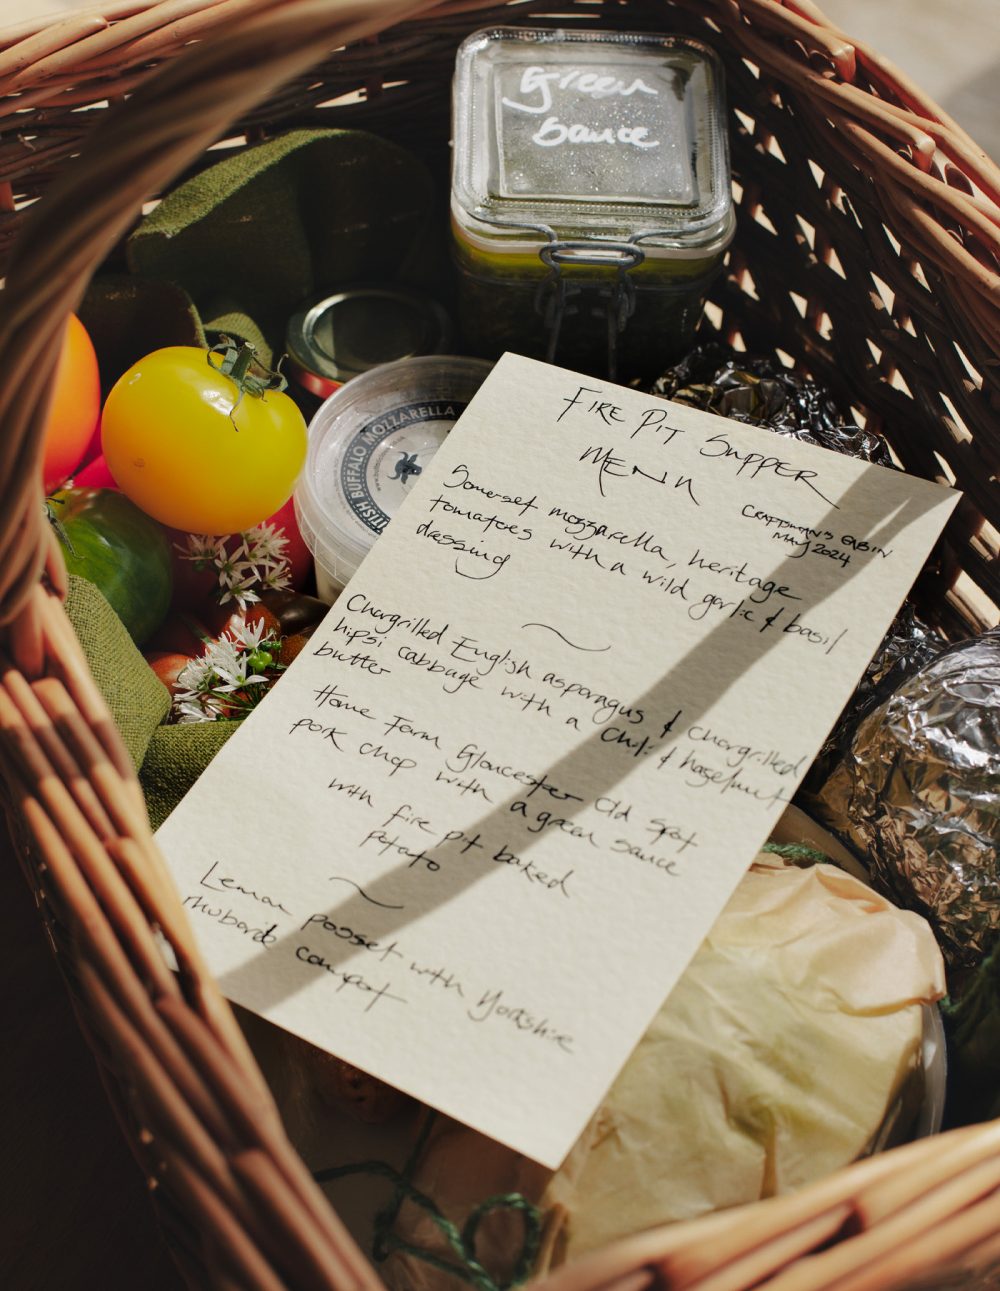 Green
Sauce
TISH BUFFALO MOZZARELLA
FIRE PIT SUPPER
MENU
CRAFTSMAN'S CABIN
MAY 2024
Somerset mozzarella, heritage
tomatoes with a wild garlic & basil
dressing
Chargrilled English asparagus & chargrilled
hipsi cabbage with a chili & hazelnut
butter
Home Farm Gloucester Old Spot
pork chop with a green sauce
with fire pit baked
potato
Lemon posset with Yorkshire
rhubarb compot